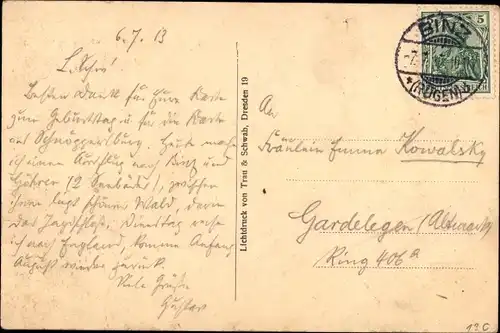 6.7.13
L. Schw!
Besten Dank für Eure Karte
zum Geburtstag u. für die Karte
aus Schnöggersburg. Heute mache
ich einen Ausflug nach Binz und
Göhren (2 Seebäder), zwischen
ihnen liegt schöner Wald, darin
das Jagdschloß. Dienstag reise
ich nach England, komme Anfang
August wieder zurück.
Viele Grüße
Gustav
Lichtdruck von Trau & Schwab, Dresden 19
BINZ
(RÜGEN)
5
An
Fräulein Emma Kowalsky
Gardelegen (Altmark)
Ring 406a